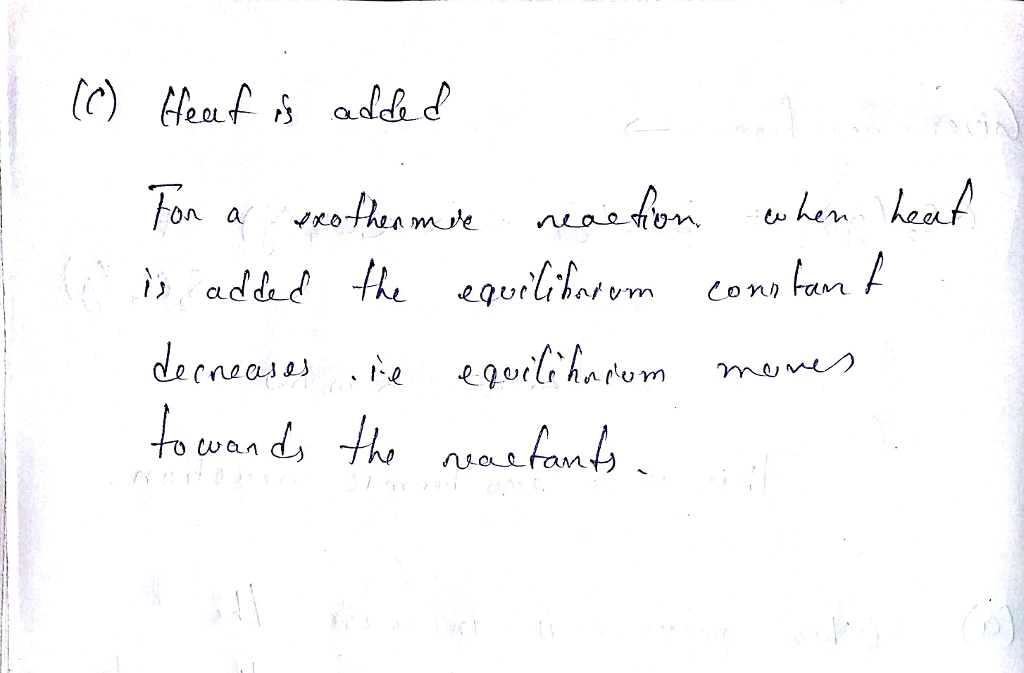 (C) Heat is added
For a exothermic reaction when heat
is added the equilibrium constant
decreases .ie equilibrium moves
towards the reactants.